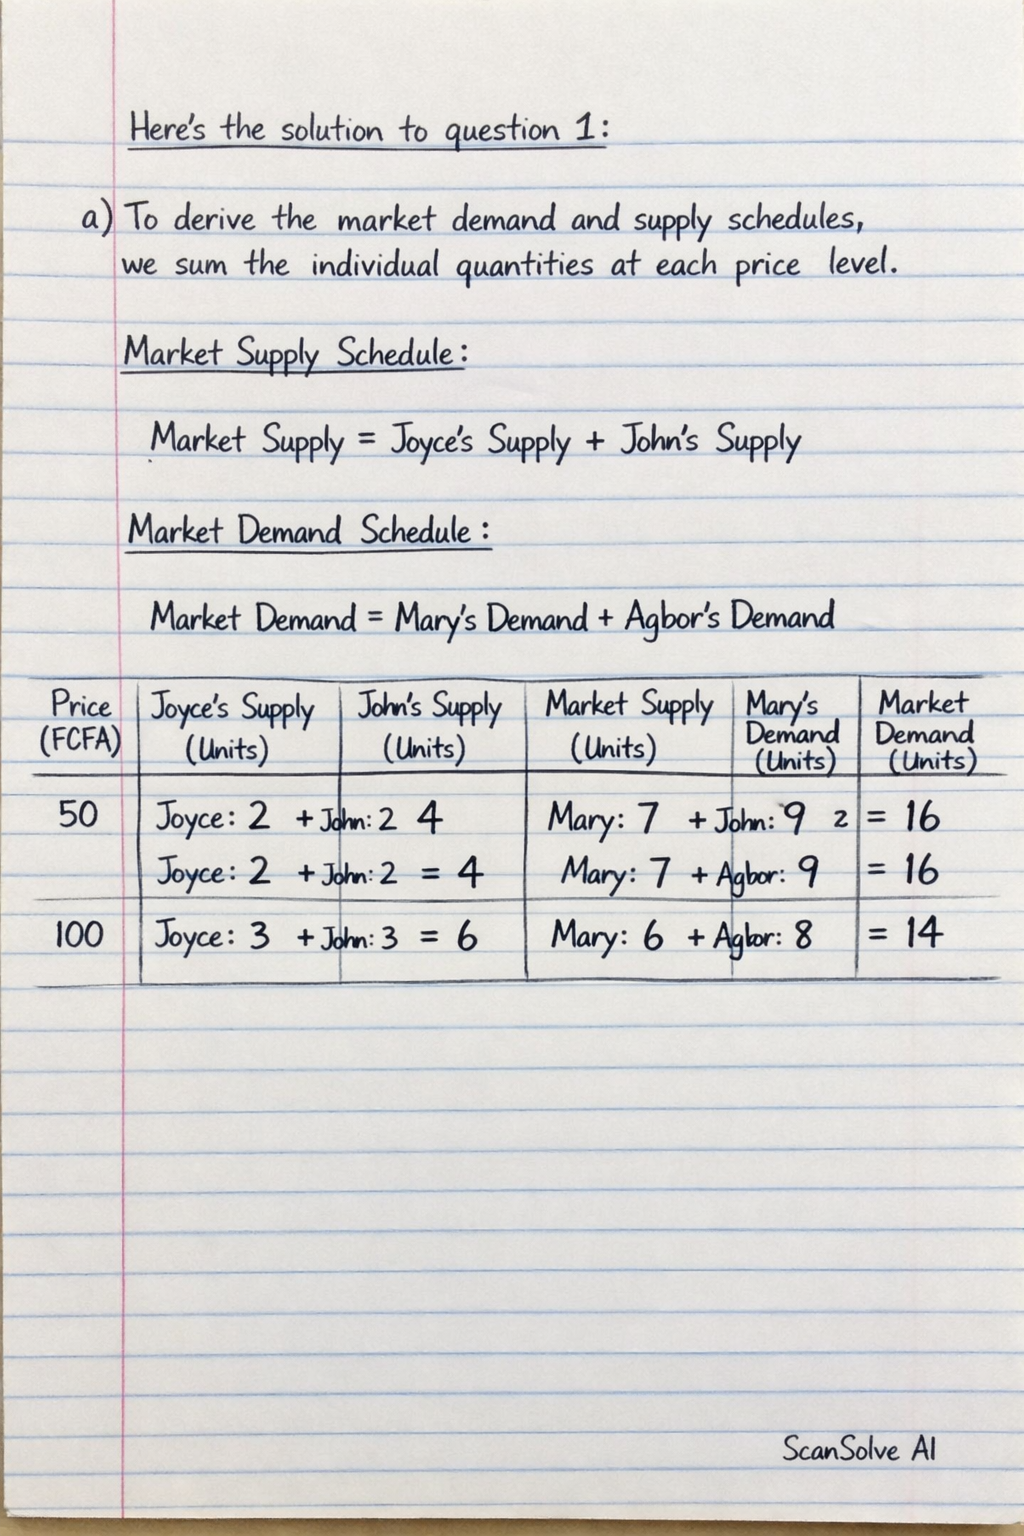 Here's the solution to question 1:
a) To derive the market demand and supply schedules,
we sum the individual quantities at each price level.
Market Supply Schedule:
Market Supply = Joyce's Supply + John's Supply
Market Demand Schedule:
Market Demand = Mary's Demand + Agbor's Demand
Price (FCFA) Joyce's Supply (Units) John's Supply (Units) Market Supply (Units) Mary's Demand (Units) Market Demand (Units)
50 Joyce: 2 + John: 2 4 Mary: 7 + John: 9 2 = 16
Joyce: 2 + John: 2 = 4 Mary: 7 + Agbor: 9 = 16
100 Joyce: 3 + John: 3 = 6 Mary: 6 + Agbor: 8 = 14
ScanSolve AI